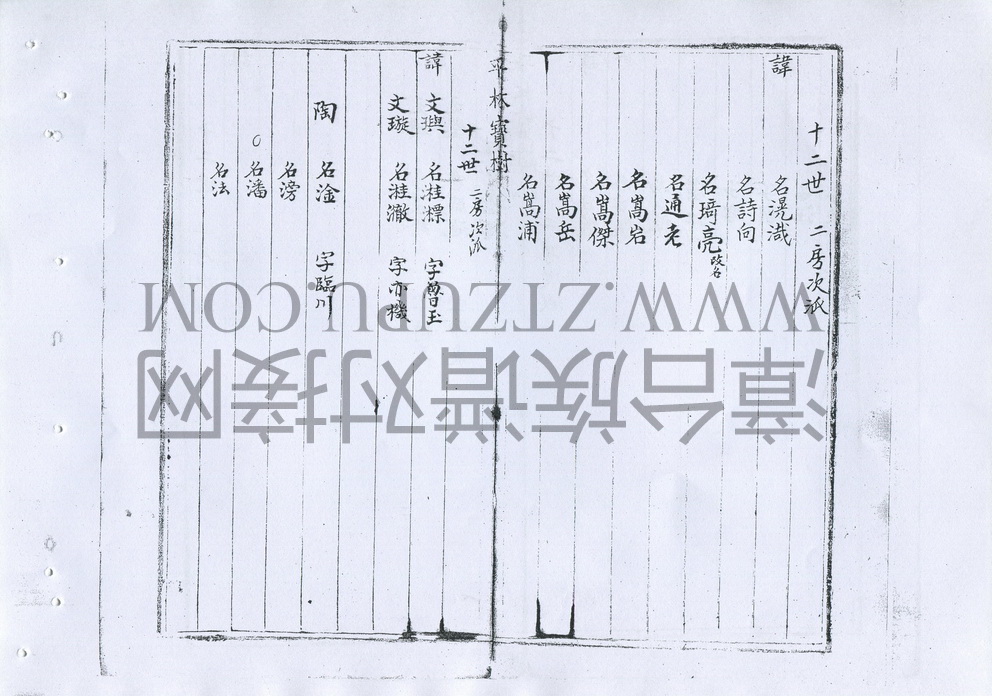 十二世 二房次派
諱 名滉濈
名詩向
名琦亮 改名
名通老
名嵩岩
名嵩傑
名嵩岳
名嵩浦
平林寶樹
十二世 二房次派
諱 文璵 名溎標 字魯玉
文璇 名溎澈 字亦機
陶 名淦 字臨川
名滂
○名潘
名法
WWW.ZTZUPU.COM
漳台族谱对接网